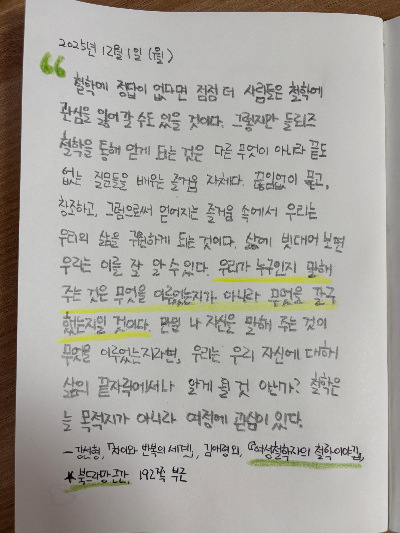 2025년 12월 1일 (월)
“ 철학에 정답이 없다면 점점 더 사람들은 철학에
관심을 잃어갈 수도 있을 것이다. 그렇지만 들뢰즈
철학을 통해 알게 되는 것은 다른 무엇이 아니라 끝도
없는 질문들을 배우는 즐거움 자체다. 끊임없이 묻고,
창조하고, 그럼으로써 얻어지는 즐거움 속에서 우리는
우리의 삶을 구원하게 되는 것이다. 삶에 빗대어 보면
우리는 이를 잘 알 수 있다. 우리가 누구인지 말해
주는 것은 무엇을 이루었는지가 아니라 무엇을 갈구
했는지일 것이다. 만일 나 자신을 말해 주는 것이
무엇을 이루었는지라면, 우리는 우리 자신에 대해서
삶의 끝자락에서나 알게 될 것 아닌가? 철학은
늘 목적지가 아니라 여정에 관심이 있다.
- 강선형, 「차이와 반복의 세계」, 김애령 외, 『여성철학자의 철학이야기』,
★ 북드라망 출간, 192쪽 부근